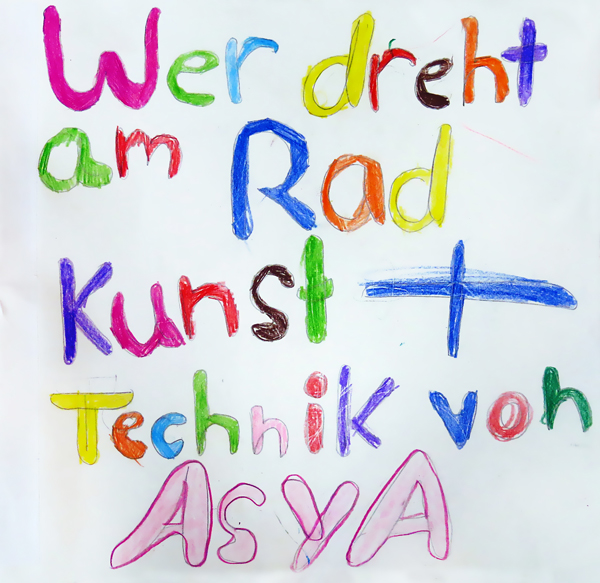 Wer dreht
am Rad
Kunst +
Technik von
AsyA